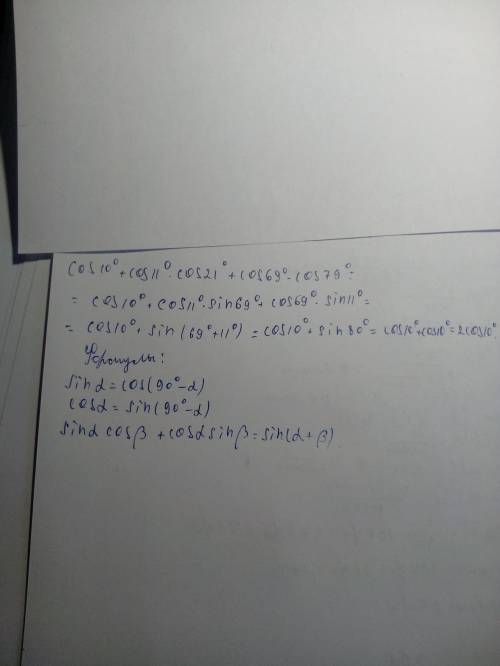 cos10°+cos11°·cos21°+cos69°·cos79°=
= cos10°+cos11°·sin69°+cos69°·sin11°=
= cos10°+sin(69°+11°)=cos10°+sin80°=cos10°+cos10°=2cos10°.
Формулы:
sinα=cos(90°-α)
cosα=sin(90°-α)
sinα cosβ+cosα sinβ=sin(α+β)